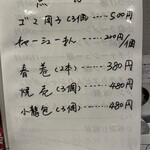 ゴマ団子(3個)・・・・・500円
チャーシューまん・・・・・220円/1個
春巻(2本)・・・・・380円
焼売(3個)・・・・・480円
小籠包(3個)・・・・・480円